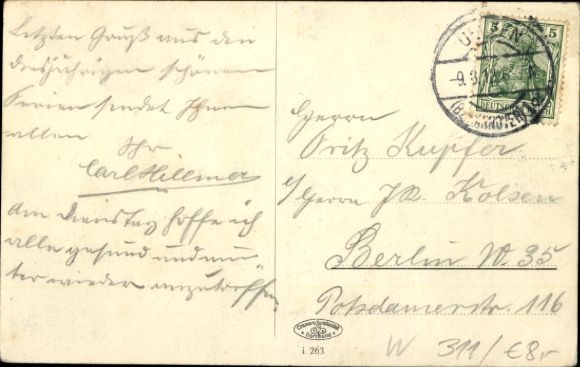 Letzten Gruß aus den
diesjährigen schönen
Ferien sendet Ihnen
allen
Ihr
Carl Hillmer
Am Dienstag hoffe ich
alle gesund und mun-
ter wieder anzutreffen.
5 5
DEUTSCHES
9.8.12
Herrn
Fritz Kupfer
p/ Herrn J. R. Kolsen
Berlin W. 35
Potsdamerstr. 116
i 263
W 311/€8,-